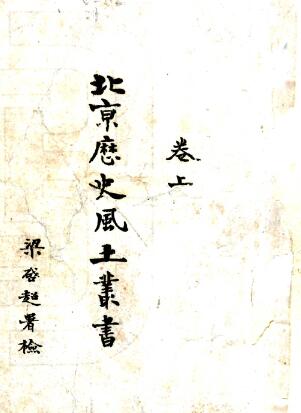 卷上
北京歷史風土叢書
梁啓超署檢